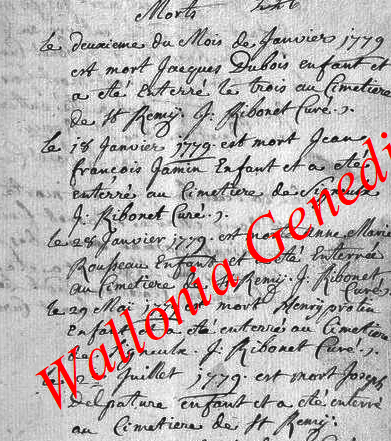 Morts
le deuxieme du Mois de Janvier 1779
est mort Jacques Dubois enfant et
a eté Enterré le trois au Cimetiere
de St Remÿ. J. Ribonet Curé.
le 18 Janvier 1779. est mort Jean
françois Jamin Enfant et a eté
enterré au Cimetiere de Signeulx
J. Ribonet Curé.
le 28 Janvier 1779. est Anne Marie
Rousseau Enfant et eté Enterrée
au Cimetiere Remÿ J. Ribonet
Curé.
le 29 Mai mort Henry
Enfant a eté enterré au Cimetiere
de Signeulx. J. Ribonet Curé.
Juillet 1779. est mort Joseph
Delpature enfant et a eté enterré
au Cimetiere de St Remÿ.
Wallonia Genedi